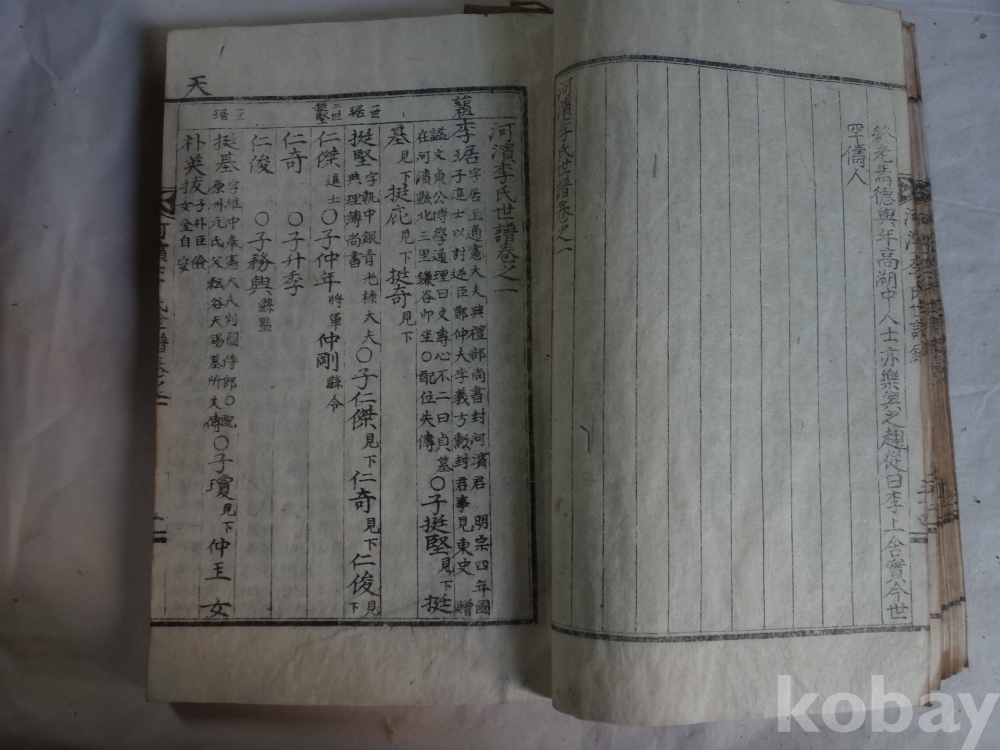 終老焉德與年高湖中人士亦樂與之趨從曰李上舍實今世
罕儔人
河濱李氏世譜卷之一
河濱李氏世譜
河濱李氏世譜卷之一
天
河濱李氏世譜卷之一
李琚 字居玉通憲大夫典禮部尚書封河濱君 明宗四年國
子進士以討逆臣鄭仲夫李義方勳封君事見東史 贈
謚文貞公博學通理曰文專心不二曰貞墓
在河濱縣北三里鎌谷卯坐○配位失傳 ○子挺堅見下 挺
基見下 挺庇見下 挺奇見下
一世 琚
挺堅 字執中銀青光祿大夫
典理簿尚書 ○子仁傑見下 仁奇見下 仁俊見下
二世 堅
仁傑 進士 ○子仲年 將軍 仲剛 縣令
仁奇 ○子升季
仁俊 ○子務與 縣監
一世 琚
挺基 字維中奉憲大夫判閤侍郎○配
原州元氏父 谷天場墓所失傳 ○子瓊見下 仲玉 女
朴英拔 子朴臣儉
女金自安
kobay